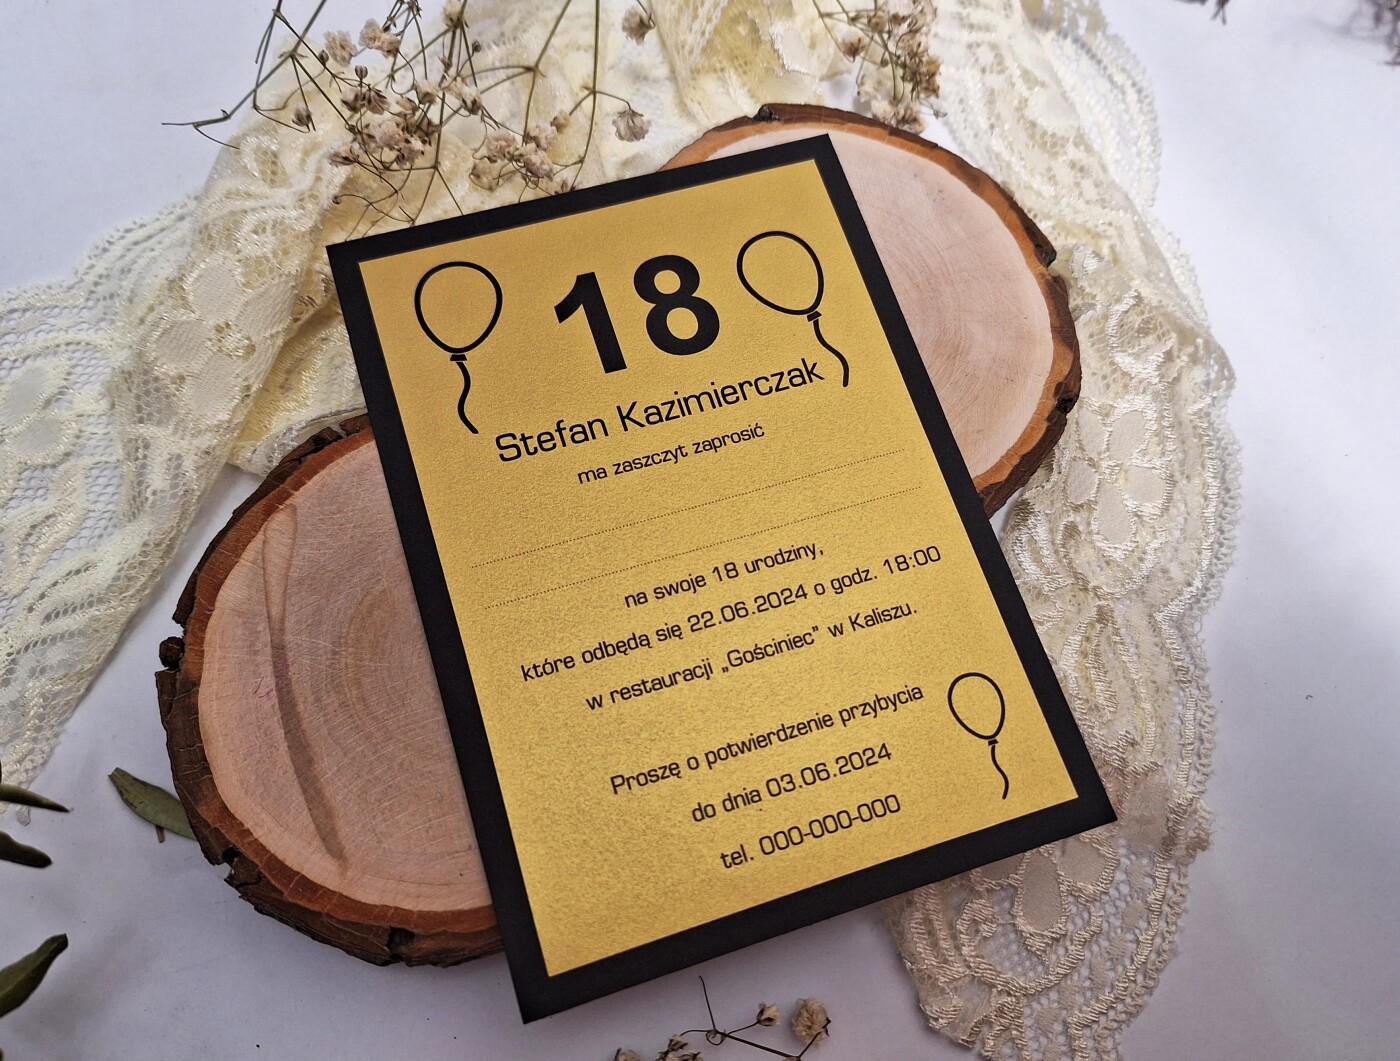 18
Stefan Kazimierczak
ma zaszczyt zaprosić
na swoje 18 urodziny,
które odbędą się 22.06.2024 o godz. 18:00
w restauracji „Gościniec” w Kaliszu.
Proszę o potwierdzenie przybycia
do dnia 03.06.2024
tel. 000-000-000